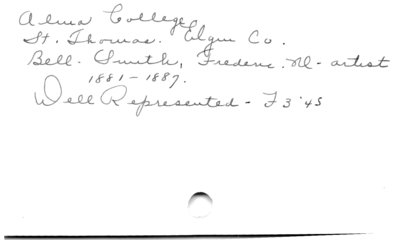 Alma College
St. Thomas. Elgin Co.
Bell. Smith, Frederic. M - artist
1881 - 1887.
Well Represented - F3 '45